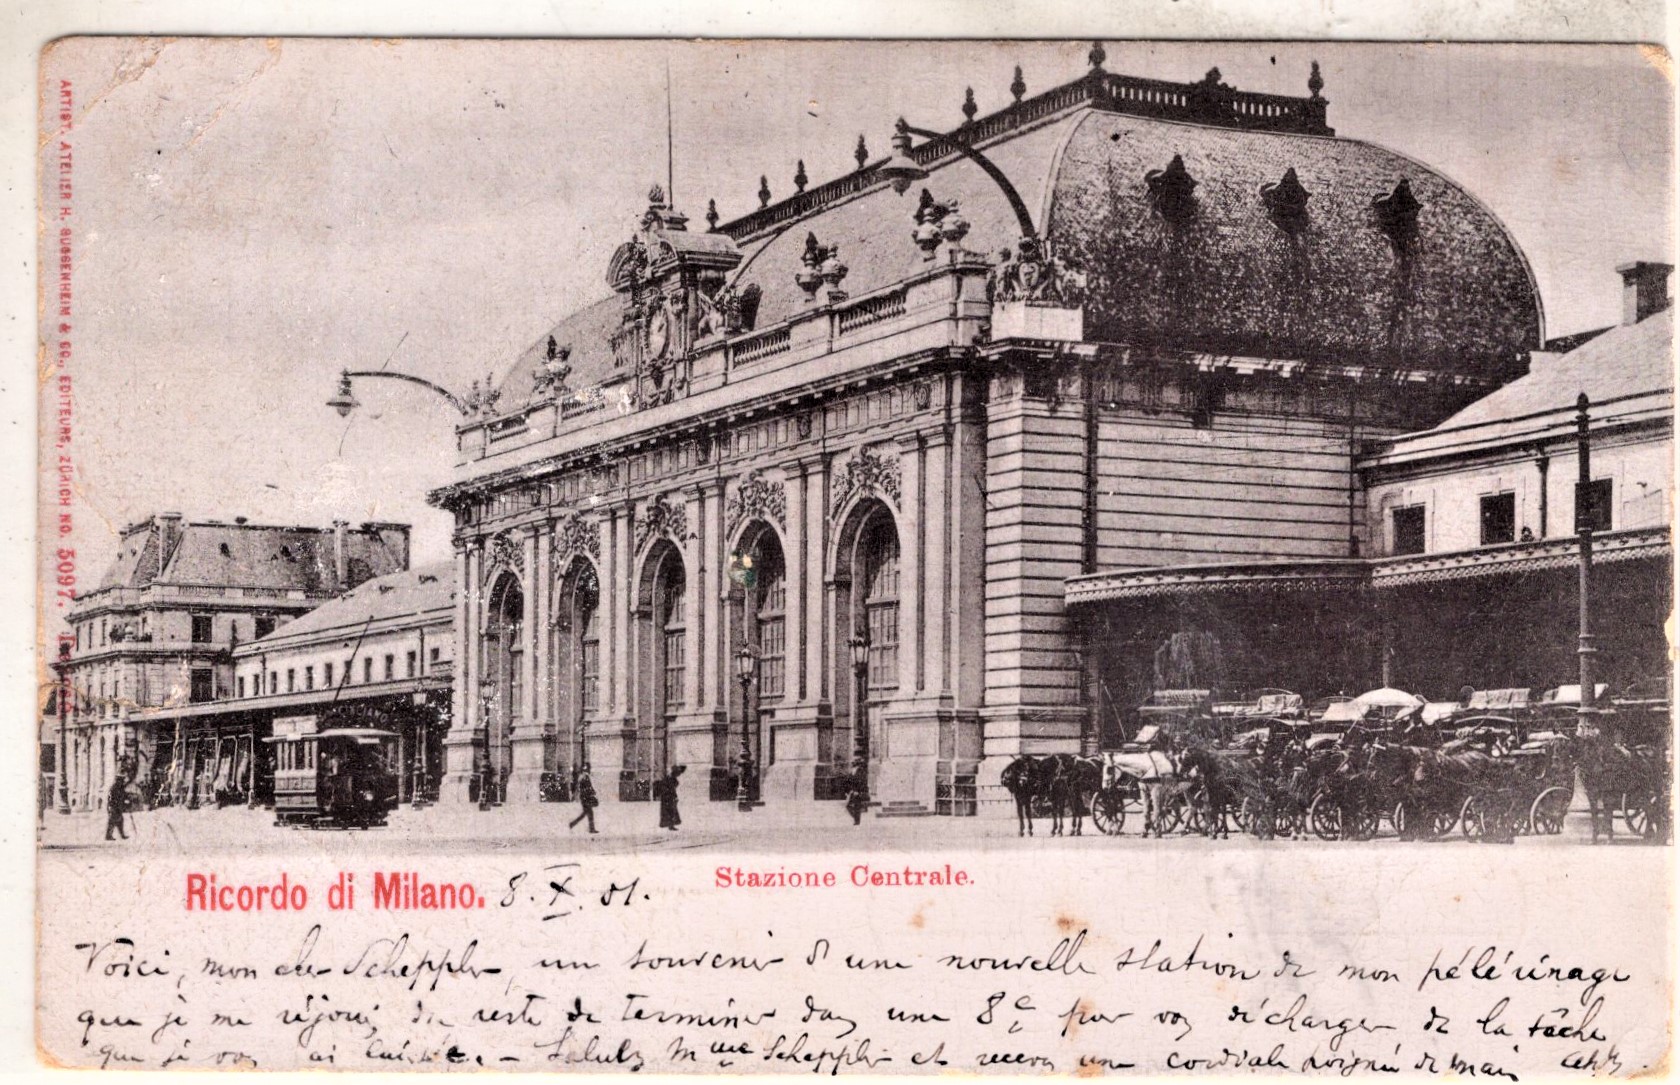 ARTIST. ATELIER H. GUGGENHEIM & CO., EDITEURS, ZÜRICH NO. 5097.
Ricordo di Milano. 8. X. 01.
Stazione Centrale.
Voici, mon cher Scheppler, un souvenir d'une nouvelle station de mon pélérinage
que je me réjouis du reste de terminer dans une 8e pour vous décharger de la tâche
que je vous ai laissée. - Saluez Mme Scheppler et recevez une cordiale poignée de main